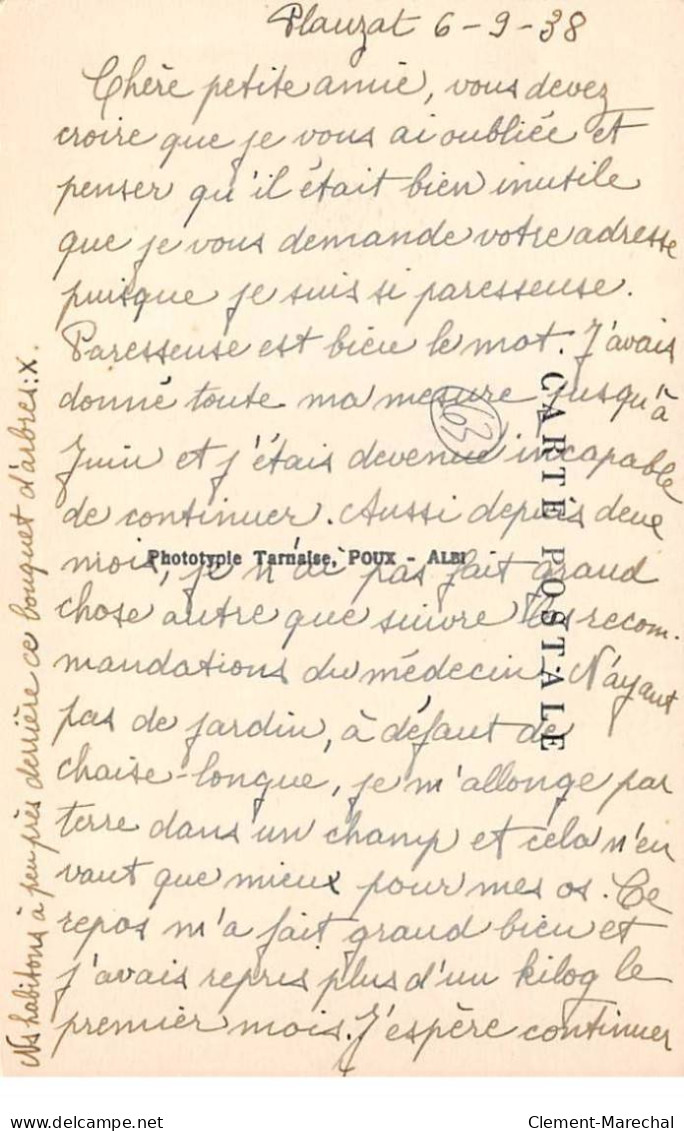 Plauzat 6-9-38
Chère petite amie, vous devez
croire que je vous ai oubliée et
penser qu'il était bien inutile
que je vous demande votre adresse
puisque je suis si paresseuse.
Paresseuse est bien le mot. J'avais
donné toute ma mesure jusqu'à
Juin et j'étais devenue incapable
de continuer. Aussi depuis deux
mois, je n'ai pas fait grand
chose autre que suivre les recom-
mandations du médecin. N'ayant
pas de jardin, à défaut de
chaise-longue, je m'allonge par
terre dans un champ et cela n'en
vaut que mieux pour mes os. Ce
repos m'a fait grand bien et
j'avais repris plus d'un kilog le
premier mois. J'espère continuer
Ns habitons à peu près derrière ce bouquet d'arbres: X.
CARTE POSTALE
Phototypie Tarnaise, POUX - ALBI
63
delcampe.net
Clement-Marechal